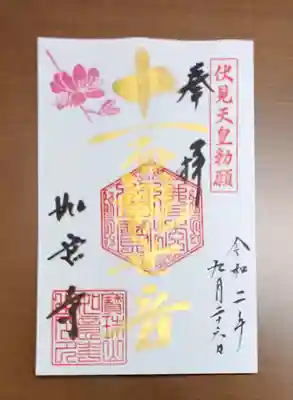 伏見天皇勅願
奉拝
十一面観音
如意寺
令和二年
九月二十六日